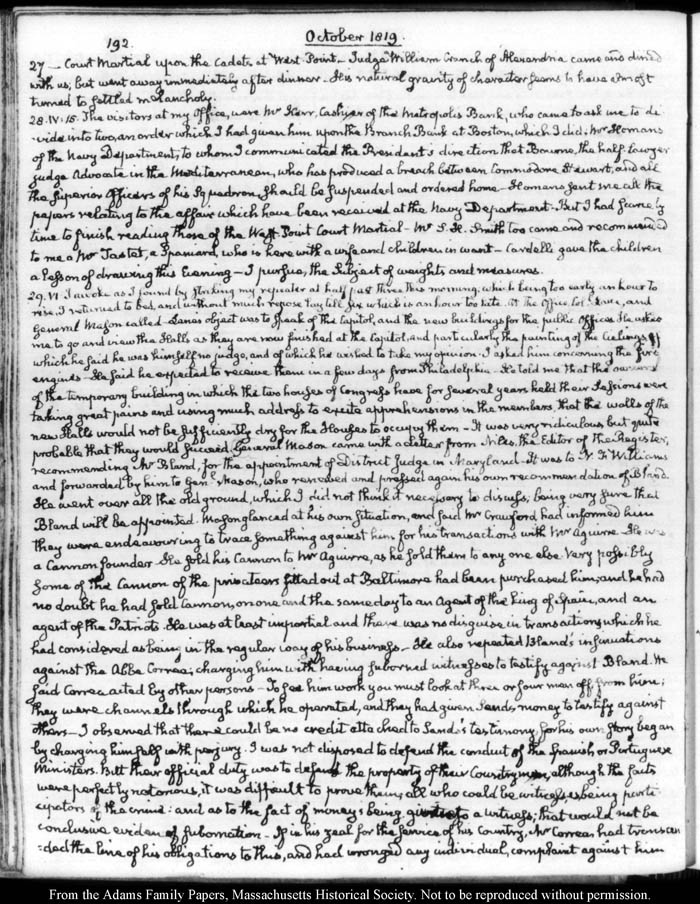 192.
October 1819.
27 — Court Martial upon the Cadets at West-Point. Judge William Cranch of Alexandria came and dined
with us; but went away immediately after dinner. His natural gravity of character seems to have almost
turned to settled melancholy.
28. IV: 15. The visitors at my Office, were Mr Kerr, Cashier of the Metropolis Bank, who came to ask me to di-
vide into two, an order which I had given him upon the Branch Bank at Boston, which I did. Mr Homans
of the Navy Department, to whom I communicated the President's direction that the half Lawyer
Judge Advocate in the Mediterranean, who has produced a breach between Commodore Stewart, and all
the Superior Officers of his Squadron, should be suspended and ordered home. Homans sent me all the
papers relating to the affair which have been received at the Navy Department. But I had scarcely
time to finish reading those of the West Point Court Martial. Mr S. H. Smith too came and recommended
to me a Mr Tastet, a Spaniard, who is here with a wife and children in want. Cardelli gave the children
a lesson of drawing this Evening — I pursue, the subject of weights and measures.
29. VI. I awoke as I found by striking my repeater at half past three this morning, which being too early an hour to
rise, I returned to bed, and without much repose lay till six which is an hour too late. At the Office, Col. Lane, and
General Mason called. Lane's object was to speak of the Capitol, and the new buildings for the public Offices. He asked
me to go and view the Halls as they are now finished at the Capitol, and particularly the painting of the Cielings of
which he said he was himself no judge, and of which he wished to take my opinion. I asked him concerning the fire
engines. He said he expected to receive them in a few days from Philadelphia. He told me that the owners
of the temporary building in which the two houses of Congress have for several years held their Sessions were
taking great pains and using much address to excite apprehensions in the members, that the walls of the
new Halls would not be sufficiently dry for the Houses to occupy them. It was very ridiculous but quite
probable that they would succeed. General Mason came with a letter from Niles, the Editor of the Register,
recommending Mr Bland, for the appointment of District Judge in Maryland. It was to N. F. Williams
and forwarded by him to Genl. Mason, who renewed and pressed again his own recommendation of Bland.
He went over all the old ground, which I did not think it necessary to discuss; being very sure that
Bland will be appointed. Mason glanced at his own situation, and said Mr Crawford had informed him
they were endeavouring to trace something against him for his transactions with Mr Aguirre. He was
a Cannon founder. He sold his Cannon to Mr Aguirre, as he sold them to any one else. Very possibly
some of the Cannon of the privateers fitted out at Baltimore had been purchased him; and he had
no doubt he had sold Cannon, on one and the same day to an Agent of the King of Spain, and an
agent of the Patriots. He was at least impartial and there was no disguise in transactions which he
had considered as being in the regular way of his business. He also repeated Bland's insinuations
against the Abbe Correa; charging him with having suborned witnesses to testify against Bland. He
said Correa acted by other persons. To see him work you must look at three or four men off, from him;
they were channels through which he operated, and they had given Sands, money to testify against
others. I observed that there could be no credit attached to Sands's testimony, for his own story began
by charging himself with perjury. I was not disposed to defend the conduct of the Spanish or Portuguese
Ministers. But their official duty was to defend the property of their Countrymen, although the facts
were perfectly notorious, it was difficult to prove them, all who could be witnesses being parti-
cipators of the crime: and as to the fact of money's being given to a witness, that would not be
conclusive evidence of subornation. If in his zeal for the service of his Country, Mr Correa, had transcen-
-ded the line of his obligations to this, and had wronged any individual, complaint against him
From the Adams Family Papers, Massachusetts Historical Society. Not to be reproduced without permission.